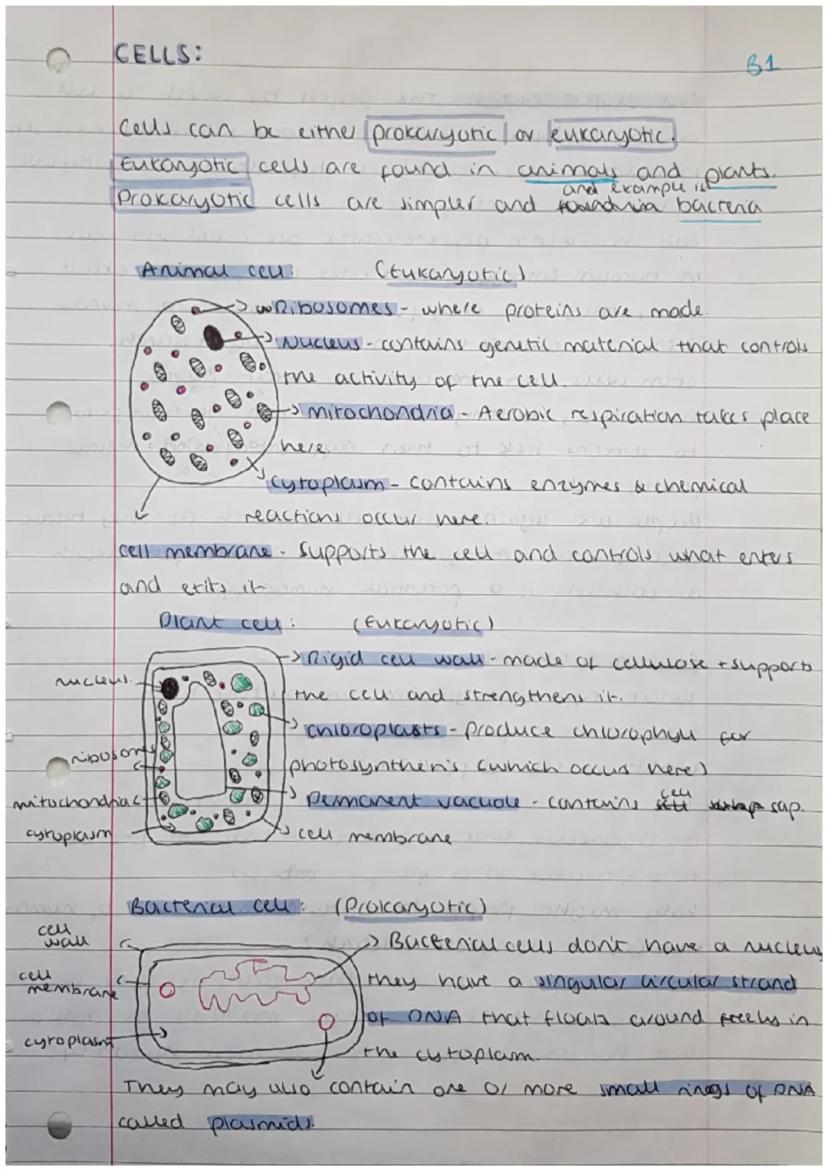 CELLS:
B1
Cells can be either prokaryotic or eukaryotic.
Eukaryotic cells are found in animals and plants.
and example is
Prokaryotic cells are simpler and bacteria
Animal cell: (Eukaryotic)
Ribosomes - where proteins are made.
Nucleus - contains genetic material that controls
the activity of the cell.
mitochondria - Aerobic respiration takes place
here
cytoplasm - contains enzymes & chemical
reactions occur here
cell membrane - supports the cell and controls what enters
and exits it
Plant cell: (Eukaryotic)
Rigid cell wall - made of cellulose + supports
nucleus
the cell and strengthens it.
chloroplasts - produce chlorophyll for
ribosomes
photosynthesis (which occurs here)
mitochondria
permanent vacuole - contains cell sap.
cytoplasm
cell membrane
Bacterial cell: (Prokaryotic)
cell
wall
Bacterial cells don't have a nucleus,
cell
membrane
they have a singular circular strand
of DNA that floats around freely in
cytoplasm
the cytoplasm.
They may also contain one or more small rings of DNA
called plasmids.